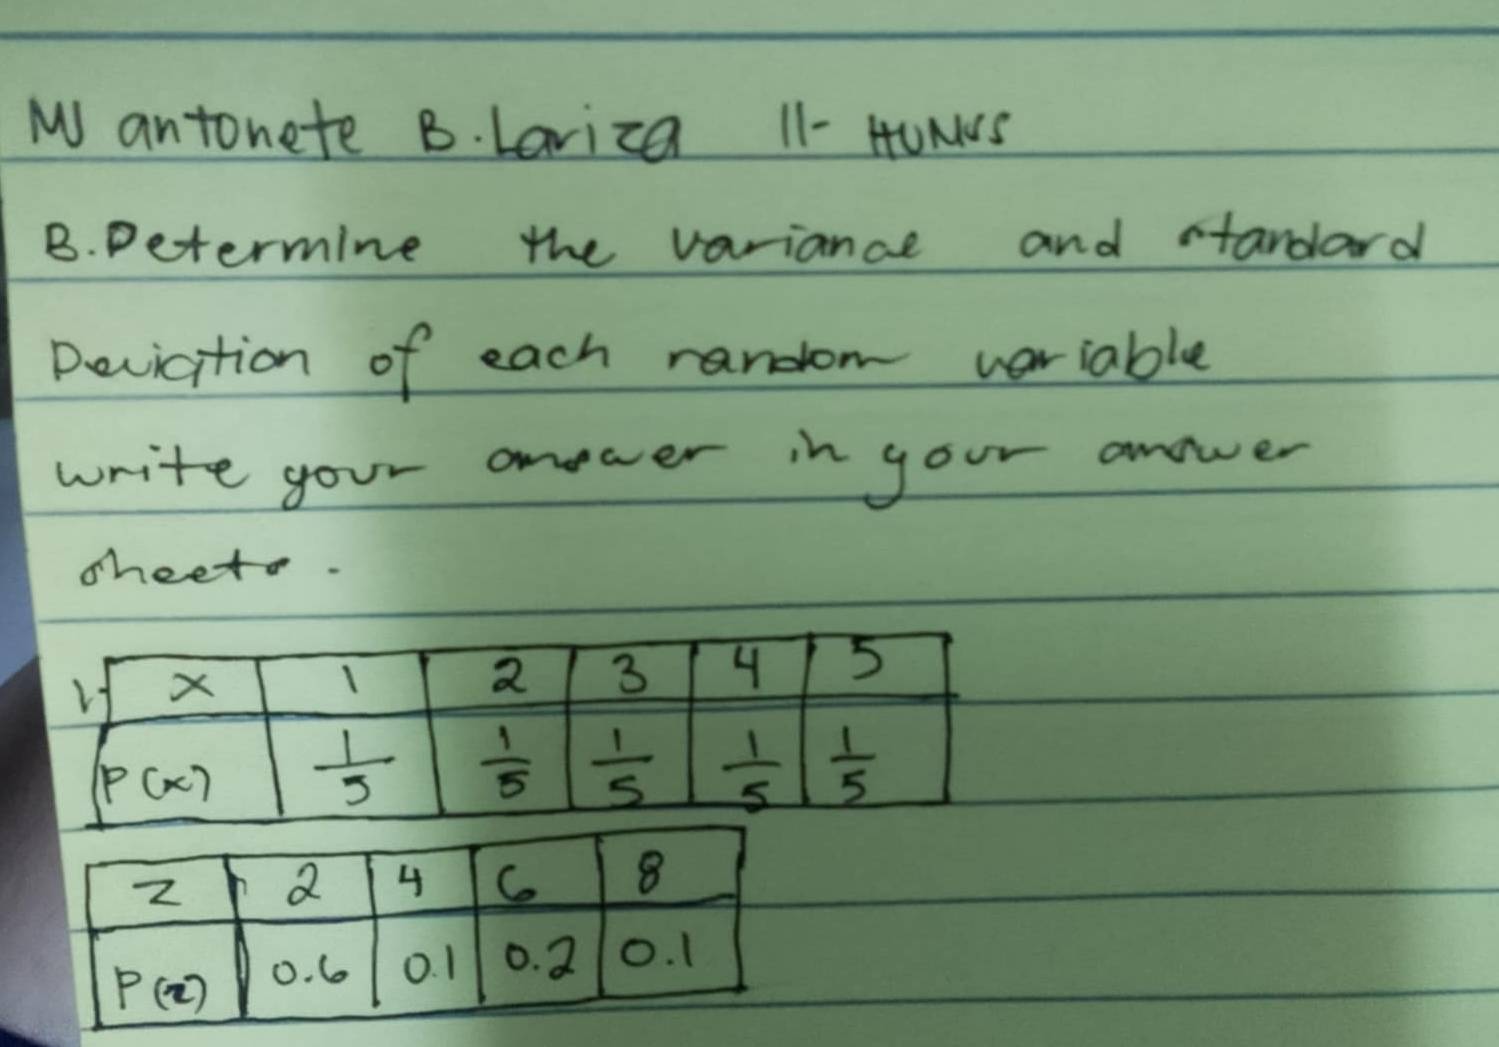 MJ antonete B. Lariza 11- HUMSS
B. Determine the variance and standard
Deviation of each random variable
write your answer in your answer
sheets.
1. x 1 2 3 4 5
P(x) 1/5 1/5 1/5 1/5 1/5
z 2 4 6 8
P(z) 0.6 0.1 0.2 0.1